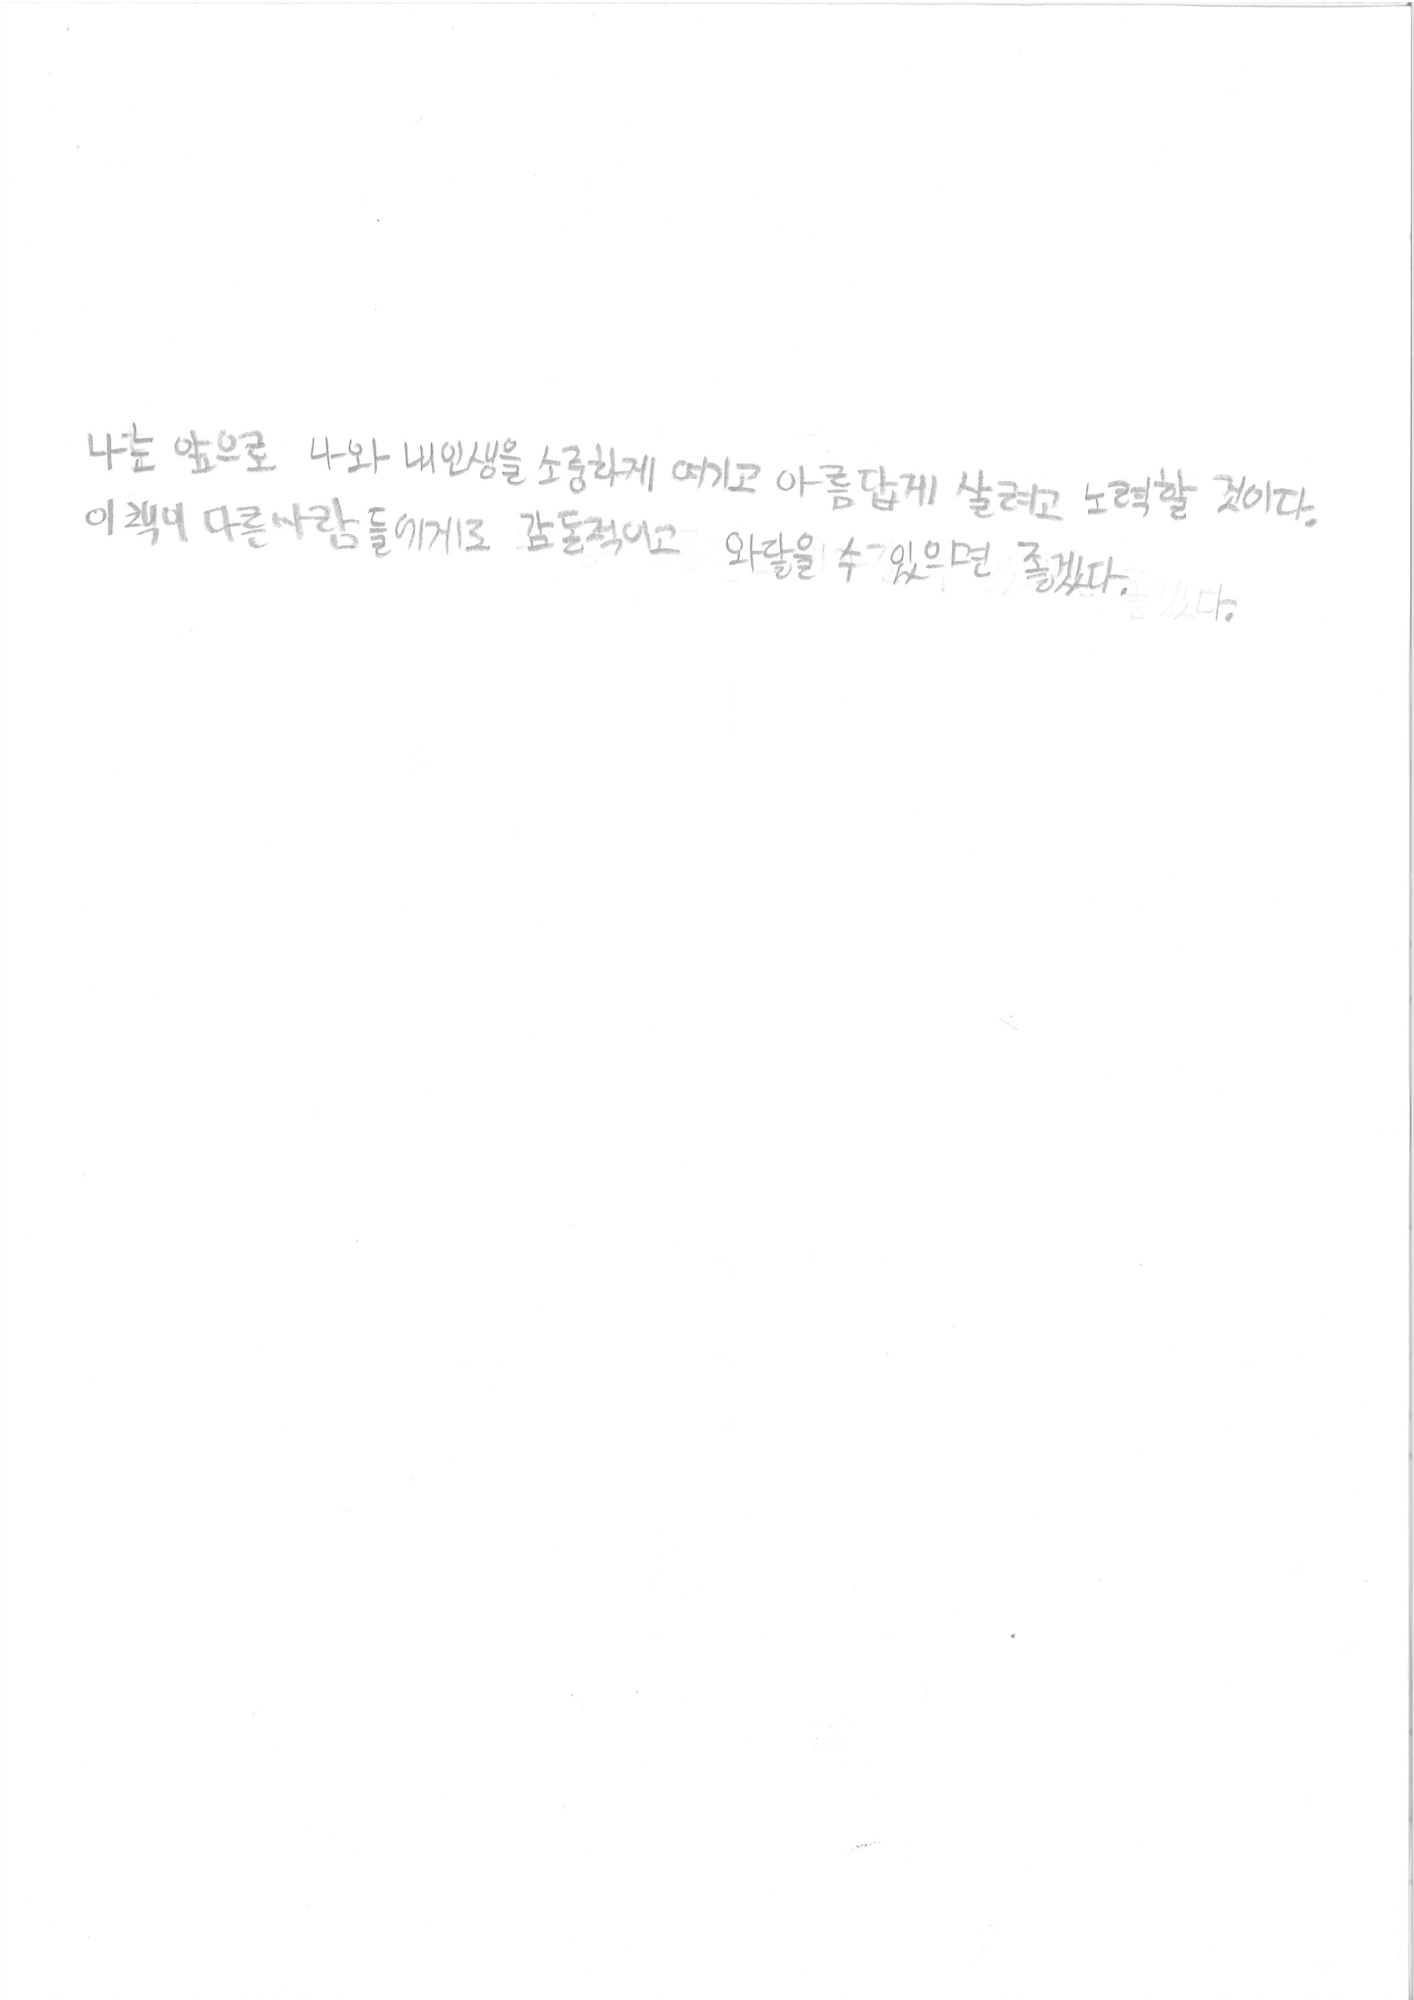 나는 앞으로 나와 내인생을 소중하게 여기고 아름답게 살려고 노력할 것이다.
이 책이 다른사람들에게로 감돌적이고 와닿을 수 있으면 좋겠다.